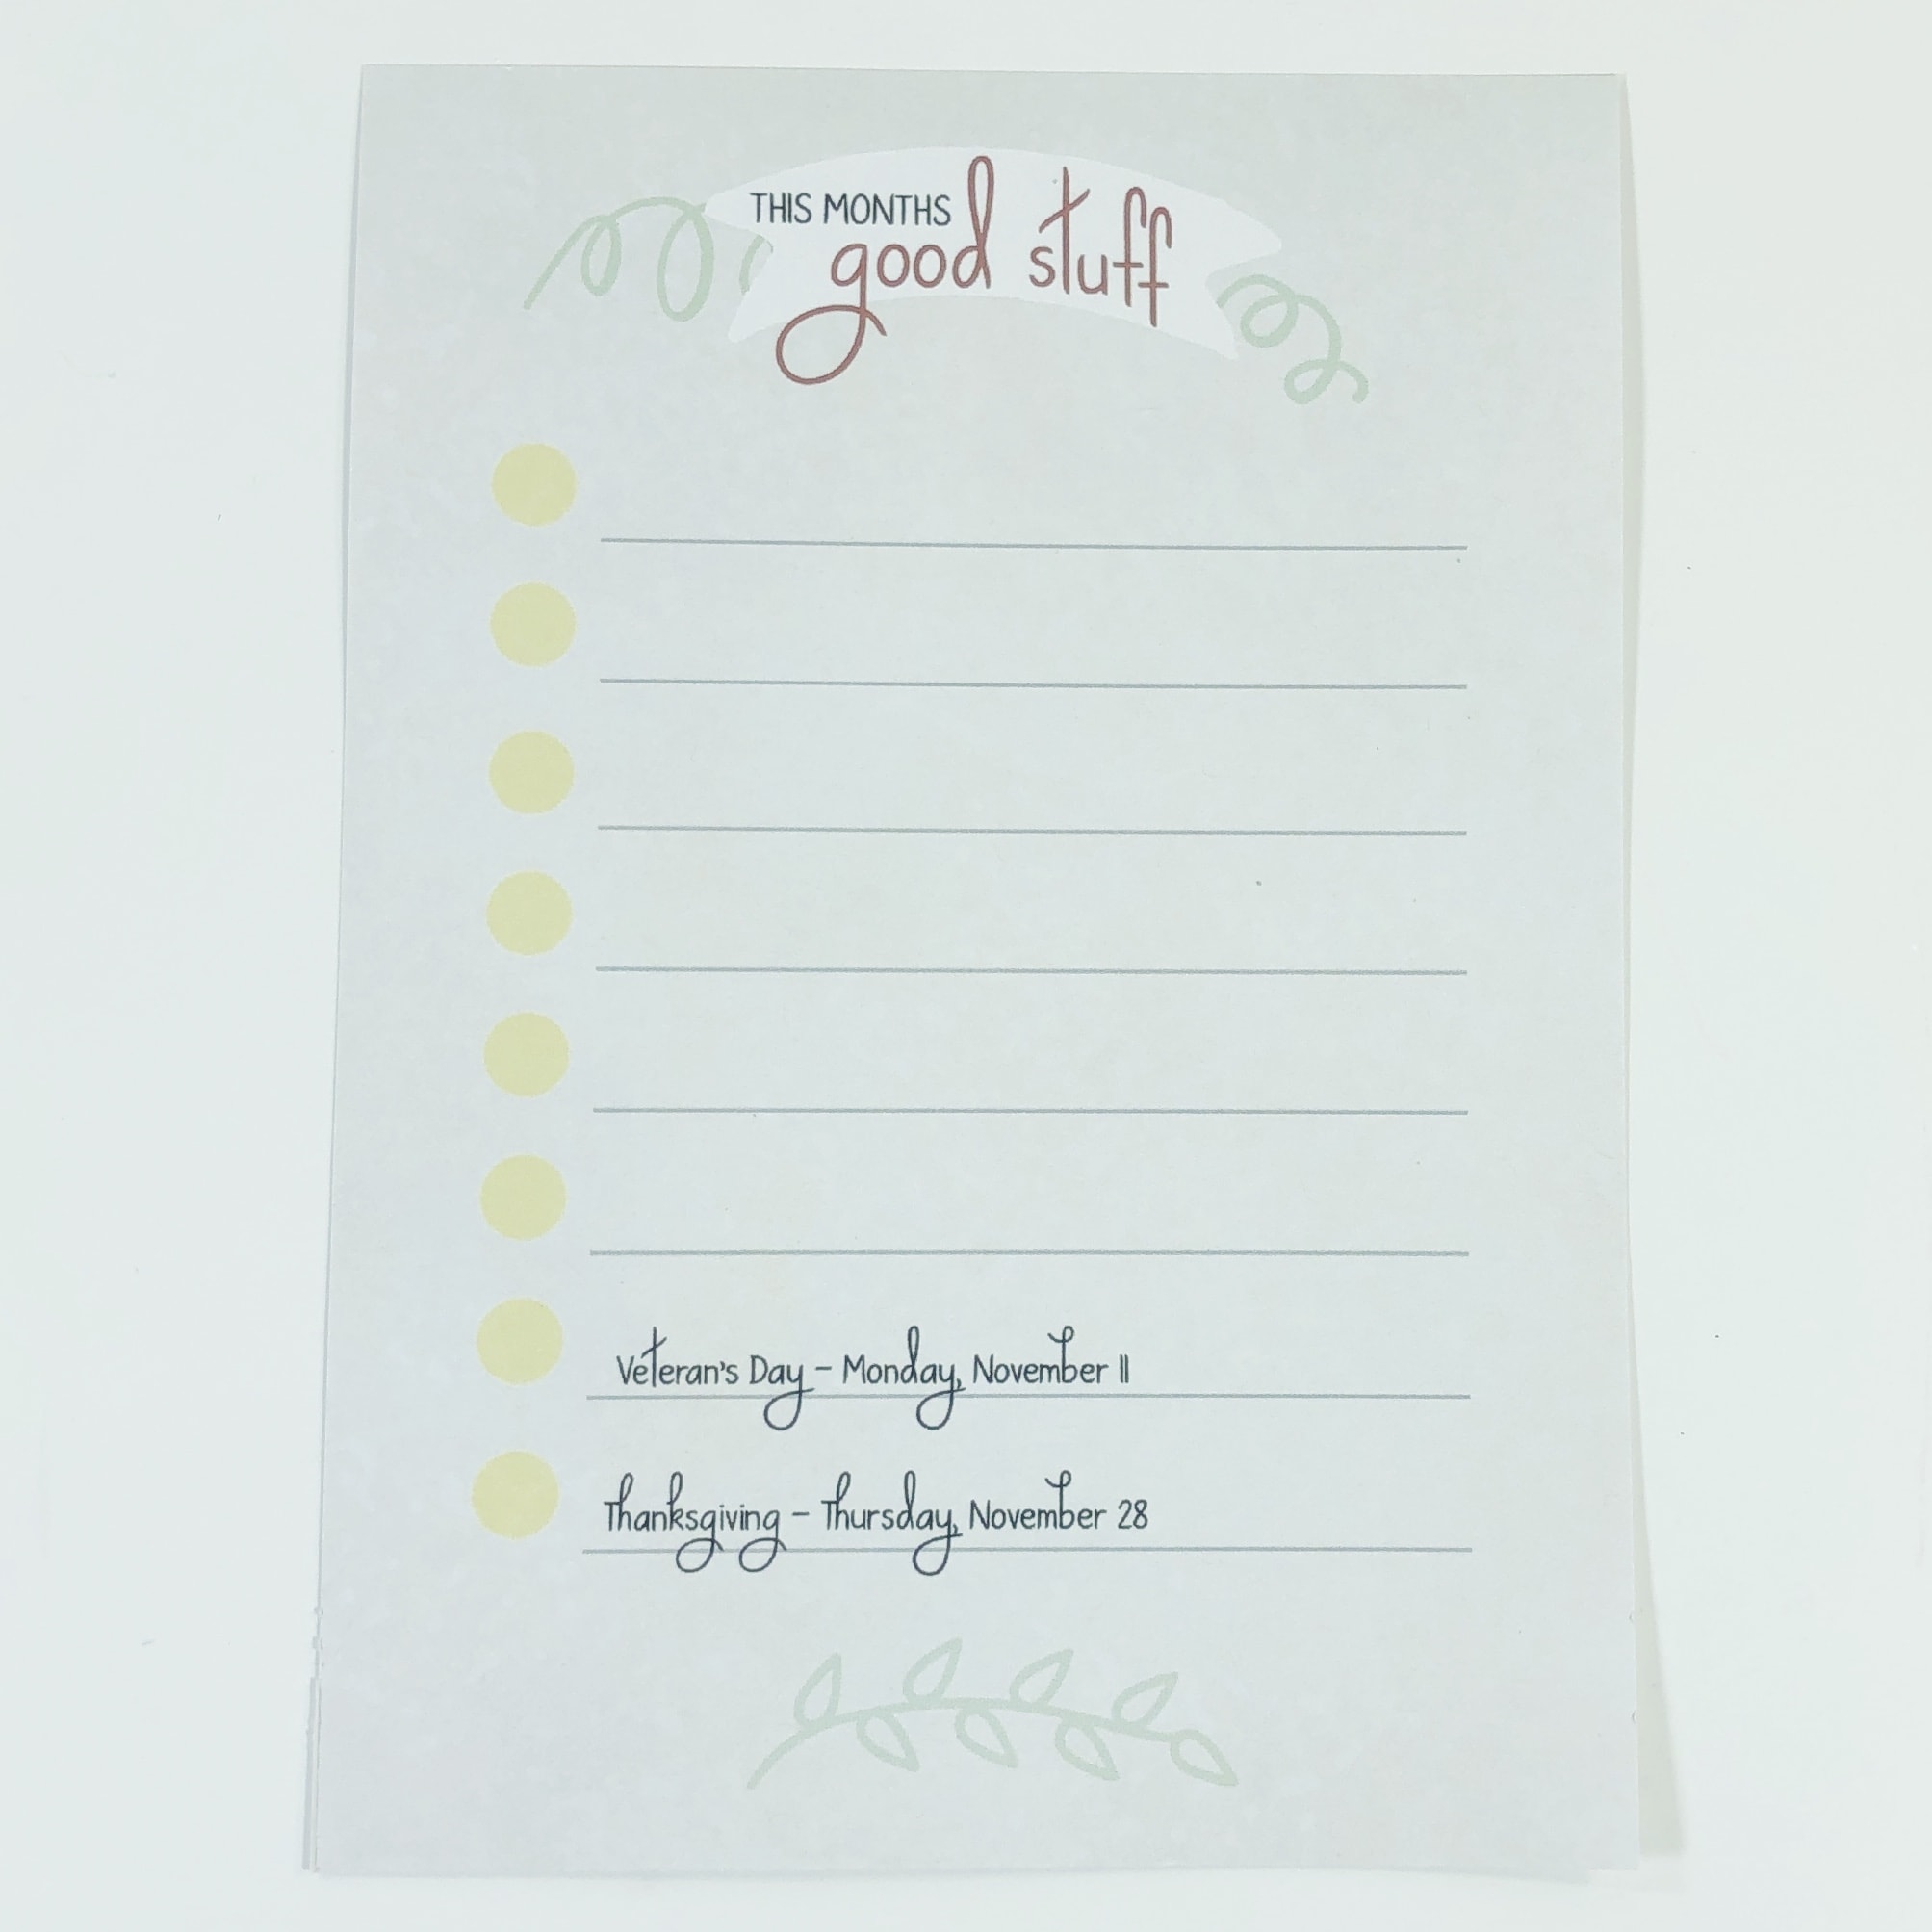 THIS MONTHS
good stuff
Veteran's Day - Monday, November 11
Thanksgiving - Thursday, November 28